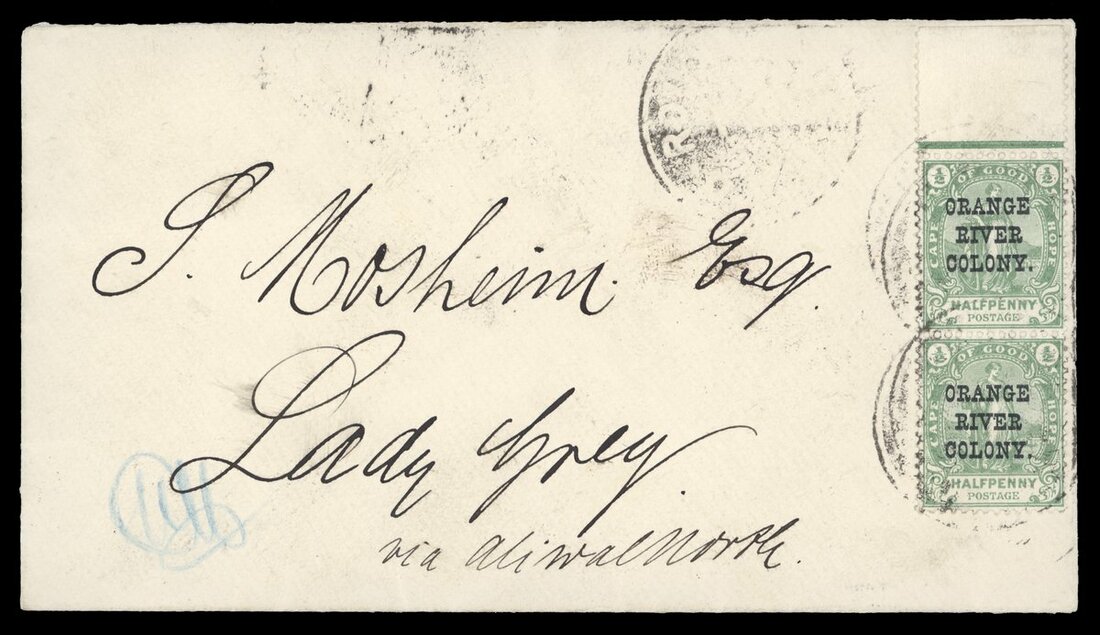 ROU
S. Mosheim. Esq.
Lady Grey.
via Aliwal North.
½ OF GOOD ½
CAPE
HOPE
ORANGE
RIVER
COLONY.
HALFPENNY
POSTAGE
½ OF GOOD ½
CAPE
HOPE
ORANGE
RIVER
COLONY.
HALFPENNY
POSTAGE